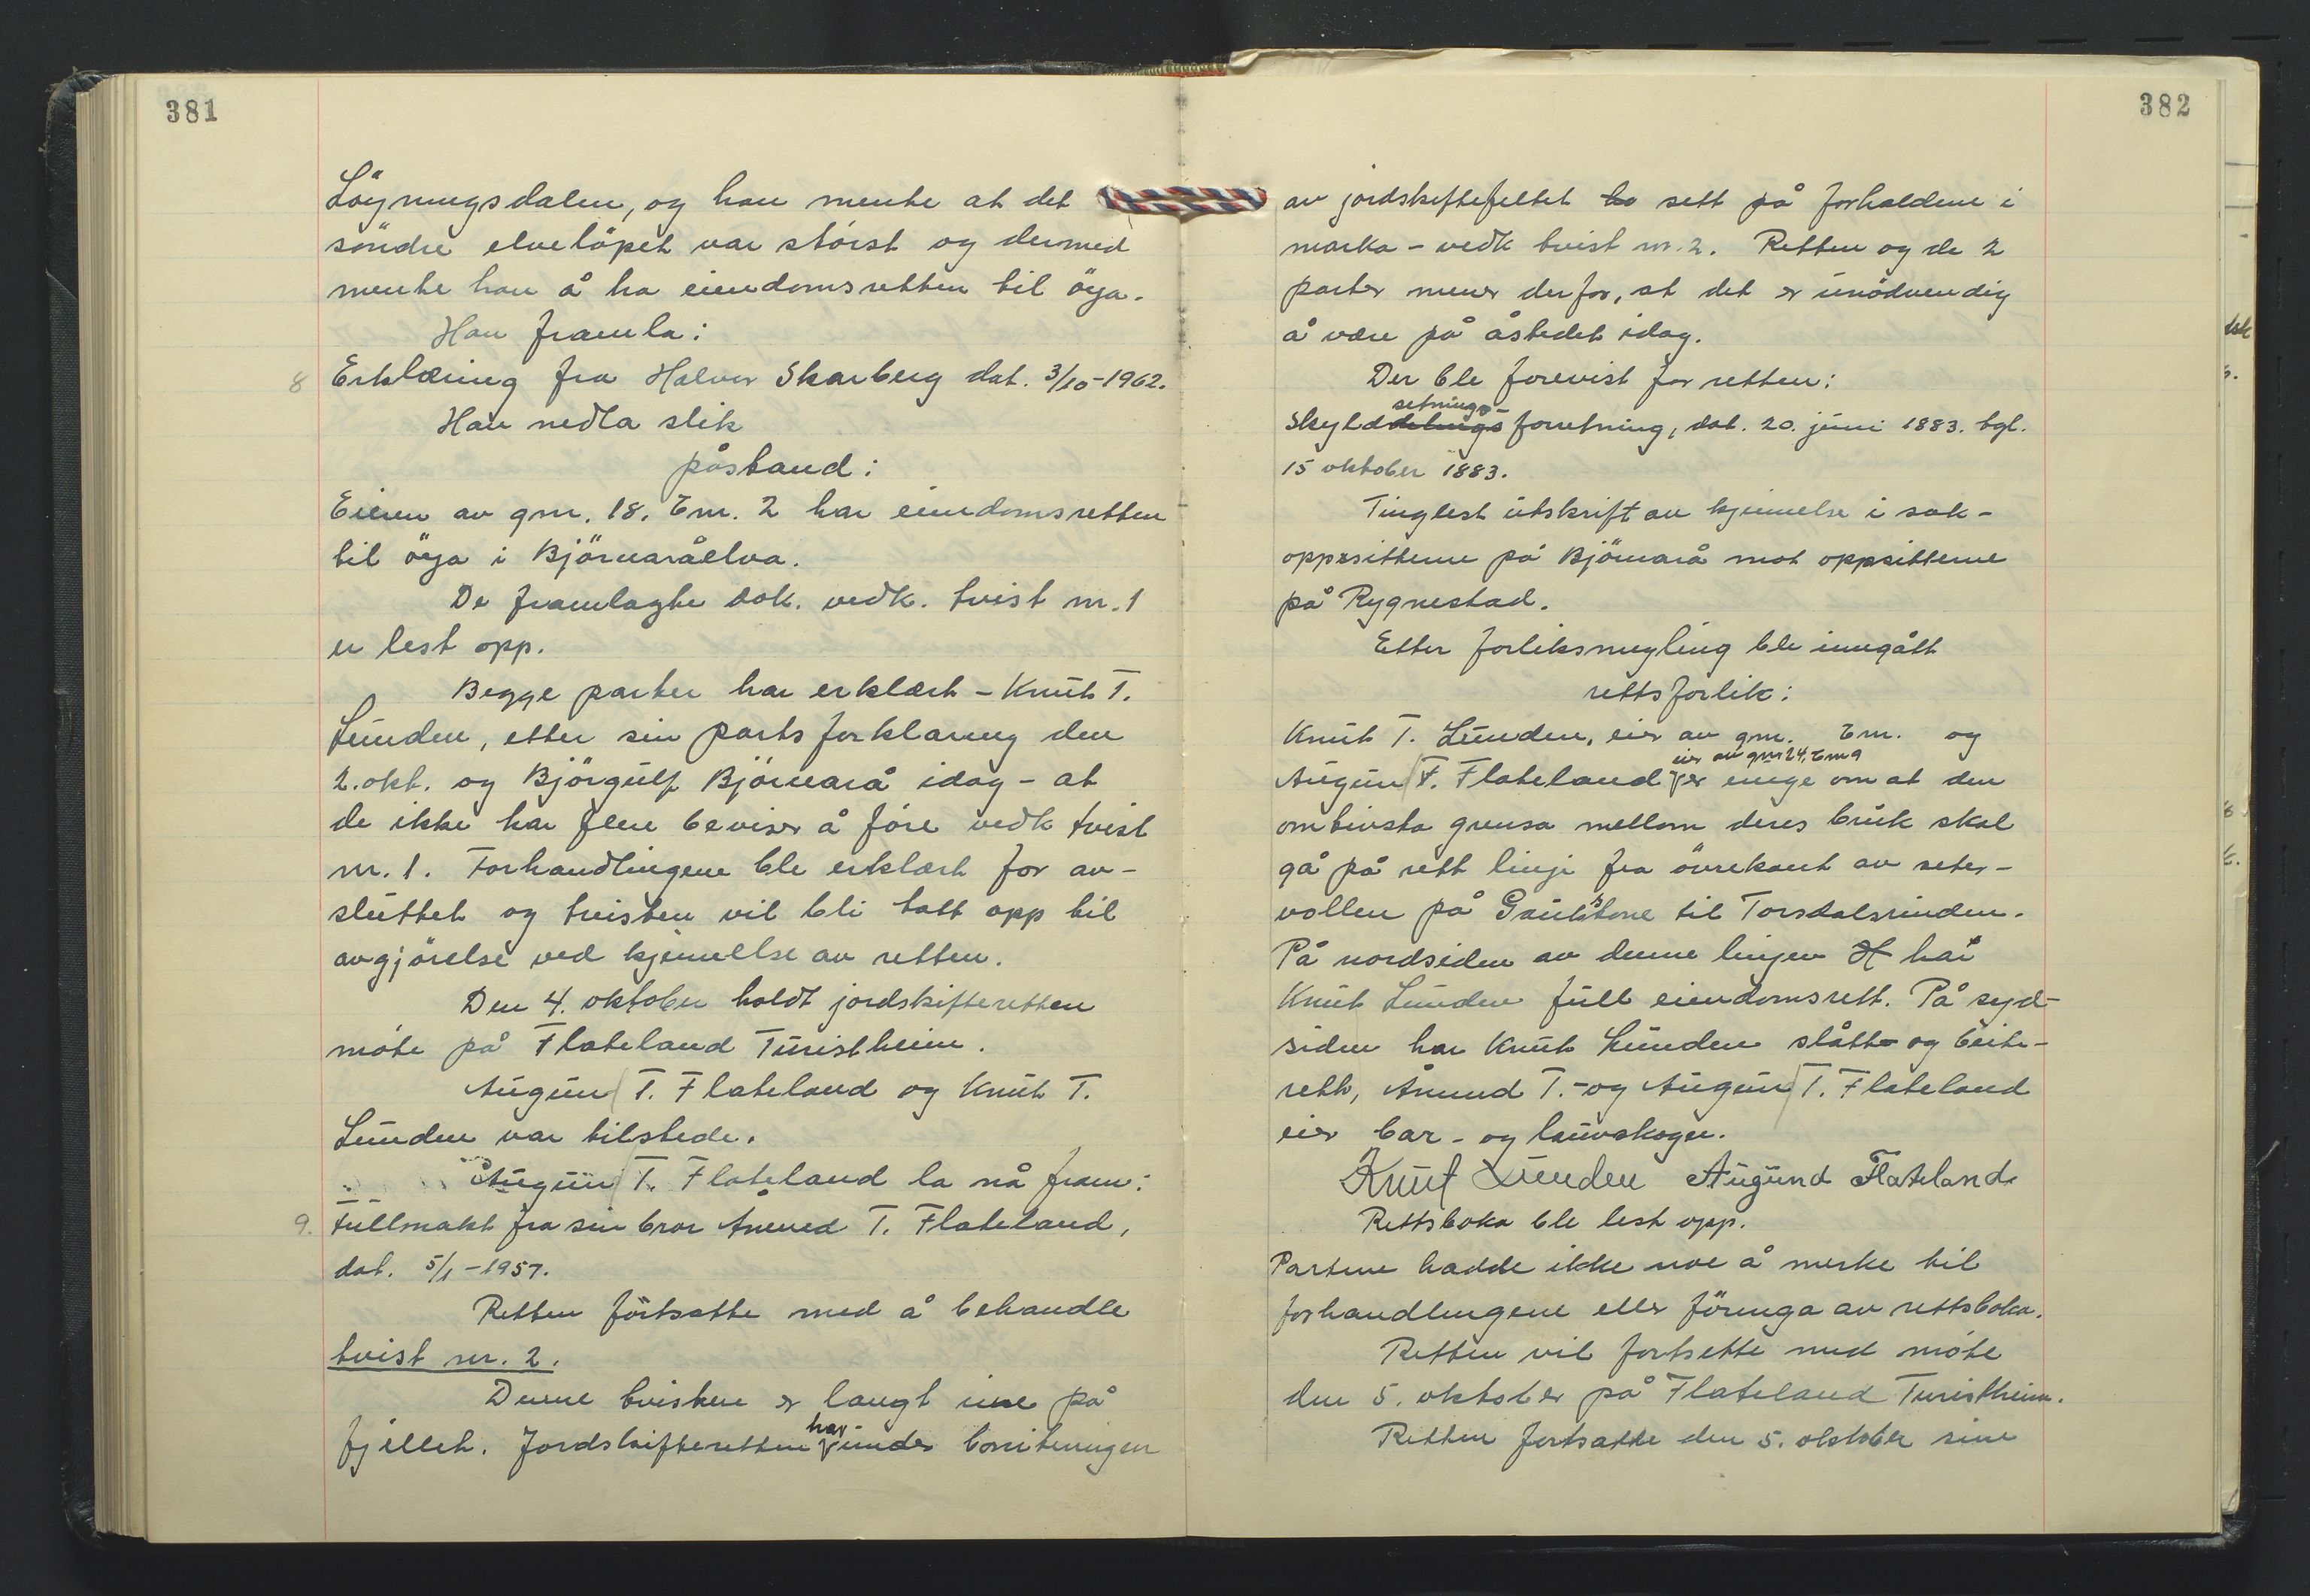 381
Löyningsdalen, og han mente at det
söndre elvelöpet var störst og dermed
mente han å ha eiendomsretten til öya.
Han framla:
8 Erklæring fra Halvor Skarberg dat. 3/10-1962.
Han nedla slik
påstand:
Eieren av gnr. 18, bnr. 2 har eiendomsretten
til öya i Björnaråelva.
De framlagte dok. vedk. tvist nr. 1
er lest opp.
Begge parter har erklært - Knut T.
Lunden, etter sin partsforklaring den
2. okt. og Björgulf Björnarå idag - at
de ikke har flere beviser å före vedk tvist
nr. 1. Forhandlingene ble erklært for av-
sluttet og tvisten vil bli tatt opp til
avgjörelse ved kjennelse av retten.
Den 4. oktober holdt jordskifteretten
möte på Flateland Turistheim.
Augun T. Flateland og Knut T.
Lunden var tilstede.
Augun T. Flateland la nå fram:
9. Fullmakt fra sin bror Ånund T. Flateland,
dat. 5/1-1957.
Retten fortsatte med å behandle
tvist nr. 2.
Denne tvisten er langt inne på
fjellet. Jordskifteretten har under
382
av jordskiftefeltet to sett på forholdene i
marka - vedk tvist nr. 2. Retten og de 2
parter mener derfor, at det er unödvendig
å være på åstedet idag.
Der ble forevist for retten:
setnings-
Skylddelingsforretning, dat. 20. juni 1883. tgl.
15 oktober 1883.
Tinglest utskrift av kjennelse i sak -
oppsitterne på Björnarå mot oppsitterne
på Rygnestad.
Etter forliksmegling ble inngått
rettsforlik:
Knut T. Lunden, eier av gnr. bnr. og
eier av gnr 24, bnr 9
Augun T. Flateland er enige om at den
omtvista grensa mellom deres bruk skal
gå på rett linje fra övrekant av seter-
vollen på til Torsdalsrinden.
På nordsiden av denne linjen H har
Knut Lunden full eiendomsrett. På syd-
siden har Knut Lunden slått- og beite-
rett, Ånund T.- og Augun T. Flateland
eier bar- og lauvskogen.
Knut Lunden Augund Flateland
Rettsboka ble lest opp.
Partene hadde ikke noe å merke til
forhandlingene eller föringa av rettsboka.
Retten vil fortsette med möte
den 5. oktober på Flateland Turistheim.
Retten fortsatte den 5. oktober sine